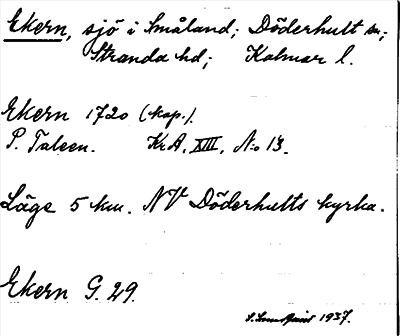 Ekern, sjö i Småland; Döderhult sn;
Stranda hd; Kalmar l.
Ekern 1720 (kop.).
P. Taleen. Kr.A. XIII, No 13.
Läge 5 km. NV Döderhults kyrka.
Ekern G. 29.
1937.